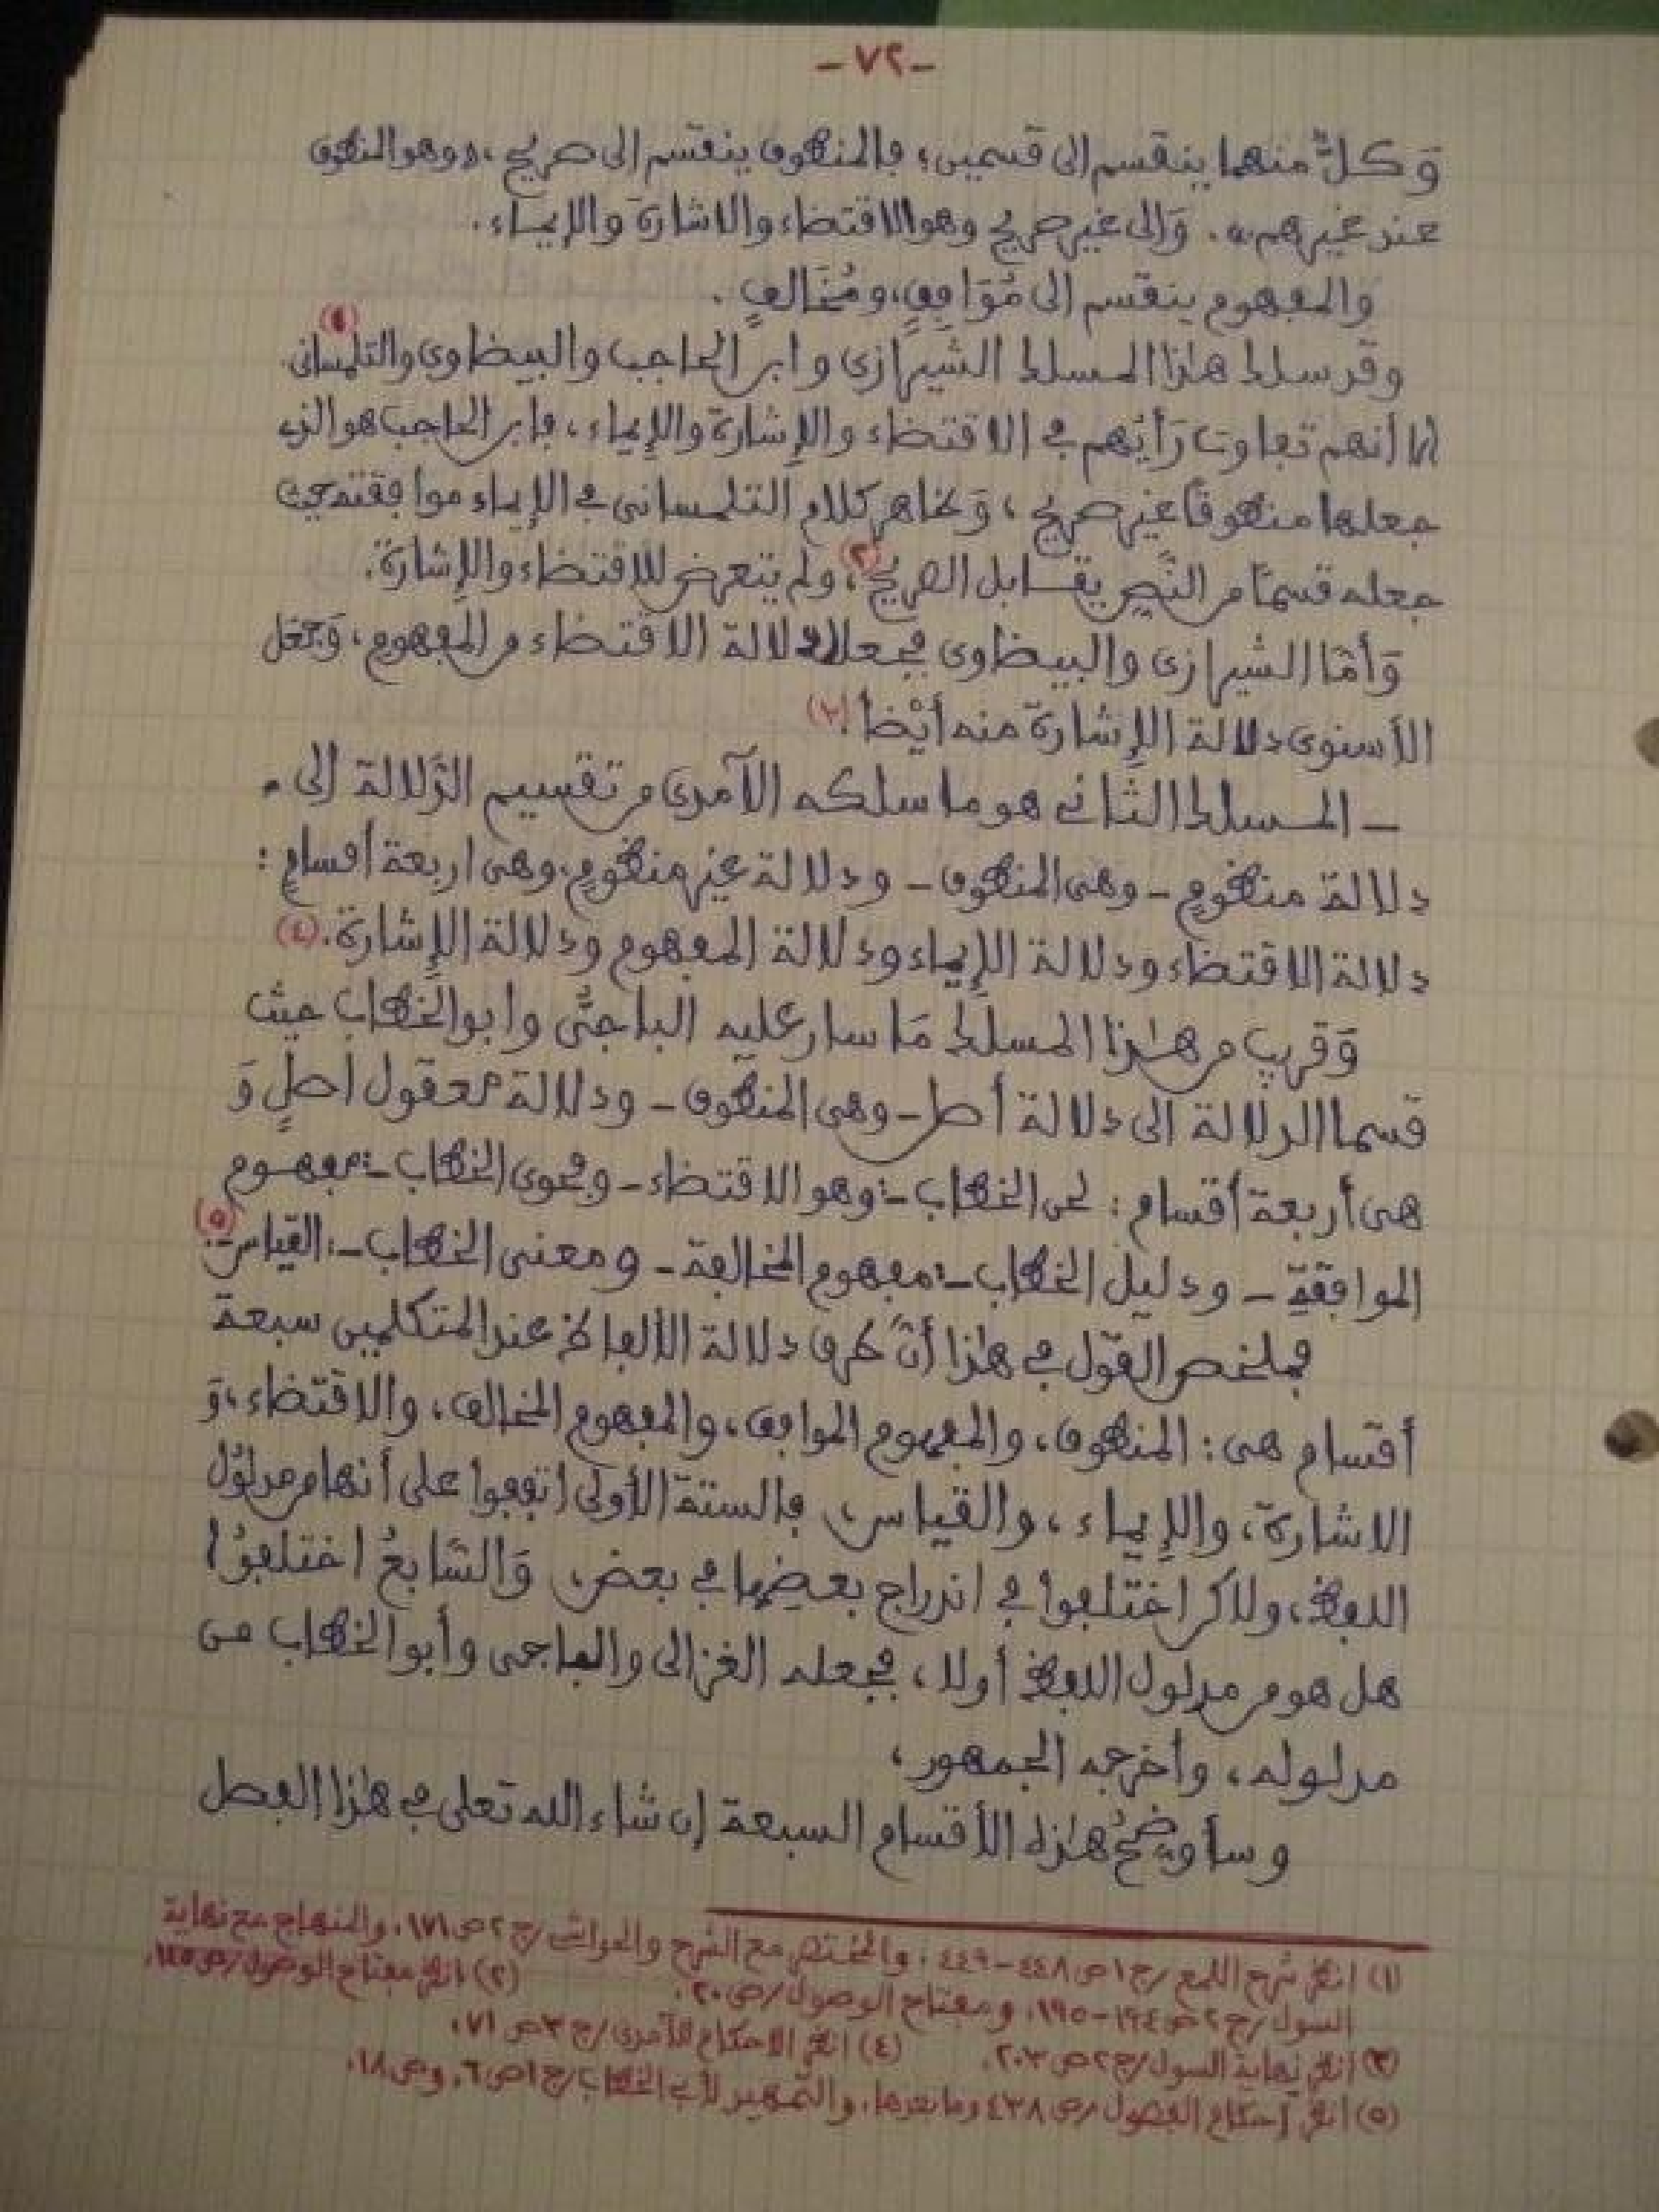 -٧٢-
وَكلٌّ منهما ينقسم إلى قسمين؛ فالمنطوق ينقسم إلى صريح، «وهو المنطوق
عند غيرهم». وَإلى غير صريح وهو الاقتضاء والاشارة والإيماء.
والمفهوم ينقسم إلى مُوَافِقٍ، ومُخَالفٍ.
وقد سلك هذا المسلك الشِّيرَازى وابن الحاجب والبيضاوى والتلمسانى (١)
إلا أنهم تفاوت رَأيُهم في الاقتضاء والإشارة والإيماء، فابن الحاجب هو الذى
جعلها منطوقًا غير صريح، وَظاهر كلام التلمسانى في الإيماء موافقته حيث
جعله قسمًا من النَّص يقابل الصريح (٢)، ولم يتعرض للاقتضاء والإشارة.
وَأمَّا الشيرازى والبيضاوى فجعلا دلالة الاقتضاء من المفهوم، وَجَعَل
الأسنوى دلالة الإشارة منه أيْضا. (٣)
— المسلك الثَّاني هو ما سلكه الآمدى من تقسيم الدَّلالة إلى
دلالة منظومٍ - وهى المنطوق - ودلالة غير منظومٍ، وهى اربعة أقسامٍ:
دلالة الاقتضاء ودلالة الإيماء ودلالة المفهوم ودلالة الإشارة. (٤)
وَقريب من هذا المسلك مَا سار عليه الباجىُّ وابو الخطاب حيث
قسما الدلالة إلى دلالة أصل - وهى المنطوق - ودلالة معقول اصلٍ وَ
هى أربعة أقسام: لحن الخطاب -: وهو الاقتضاء - وفحوى الخطاب -: مفهوم
الموافقة - ودليل الخطاب -: مفهوم المخالفة - ومعنى الخطاب -: القياس -. (٥)
فملخص القول في هذا أنَّ طرق دلالة الألفاظ عند المتكلمين سبعة
أقسام هى: المنطوق، والمفهوم الموافق، والمفهوم المخالف، والاقتضاء، وَ
الاشارة، والإيماء، والقياس، فالستة الأولى اتفقوا على أنها من مدلول
اللفظ، ولاكن اختلفوا في اندراج بعضها في بعض، وَالسَّابعُ اختلفوُا
هل هو من مدلول اللفظ أولا، فجعله الغزالى والباجى وأبو الخطاب من
مدلوله، وأخرجه الجمهور،
وسأوضحُ هذه الأقسام السبعة إن شاء الله تعلى في هذا الفصل
(١) انظر شرح اللمع / ج ١ ص ٤٤٨ - ٤٤٩، والمختصر مع الشرح والحواشى / ج ٢ ص ١٧١، والمنهاج مع نهاية
السول / ج ٢ ص ١٩٤ - ١٩٥، ومفتاح الوصول / ص ٢٠. (٢) انظر مفتاح الوصول / ص
(٣) انظر نهاية السول / ج ٢ ص ٢٠٣. (٤) انظر الاحكام للآمدى / ج ٣ ص ٧١.
(٥) انظر إحكام الفصول / ص ٤٣٨ وما بعدها، والتمهيد لأبي الخطاب / ج ١ ص ٦، وص ١٨.